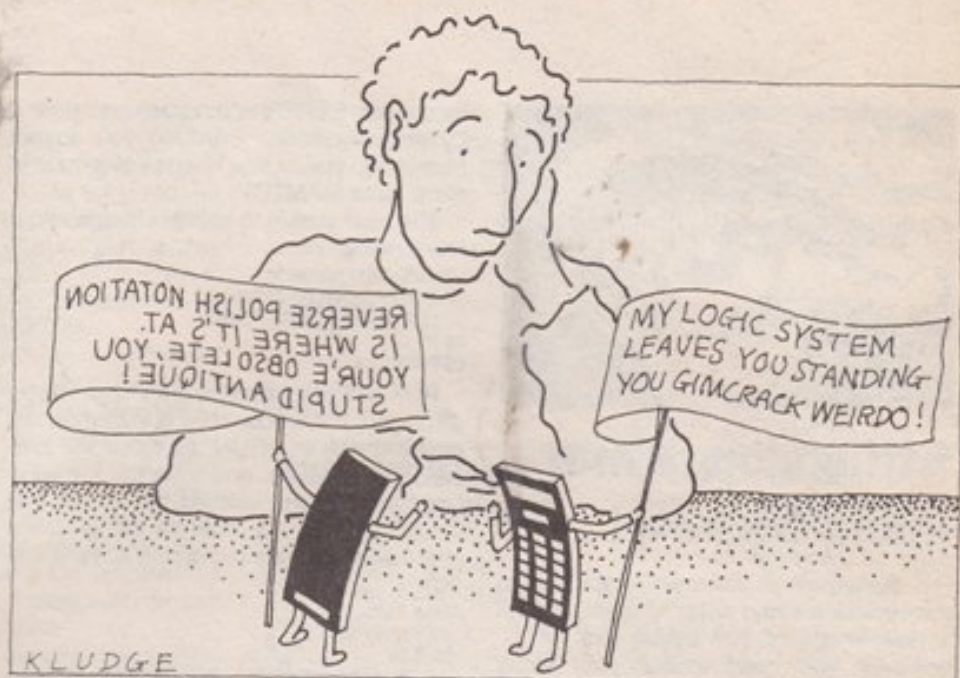 REVERSE POLISH NOTATION
IS WHERE IT'S AT.
YOUR'E OBSOLETE, YOU
STUPID ANTIQUE!
MY LOGIC SYSTEM
LEAVES YOU STANDING
YOU GIMCRACK WEIRDO!
KLUDGE